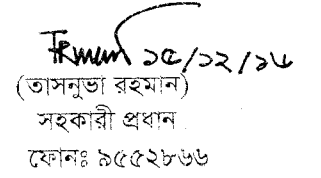 ১৫/১২/১৬
(তাসনুভা রহমান)
সহকারী প্রধান
ফোনঃ ৯৫৫২৮৬৬